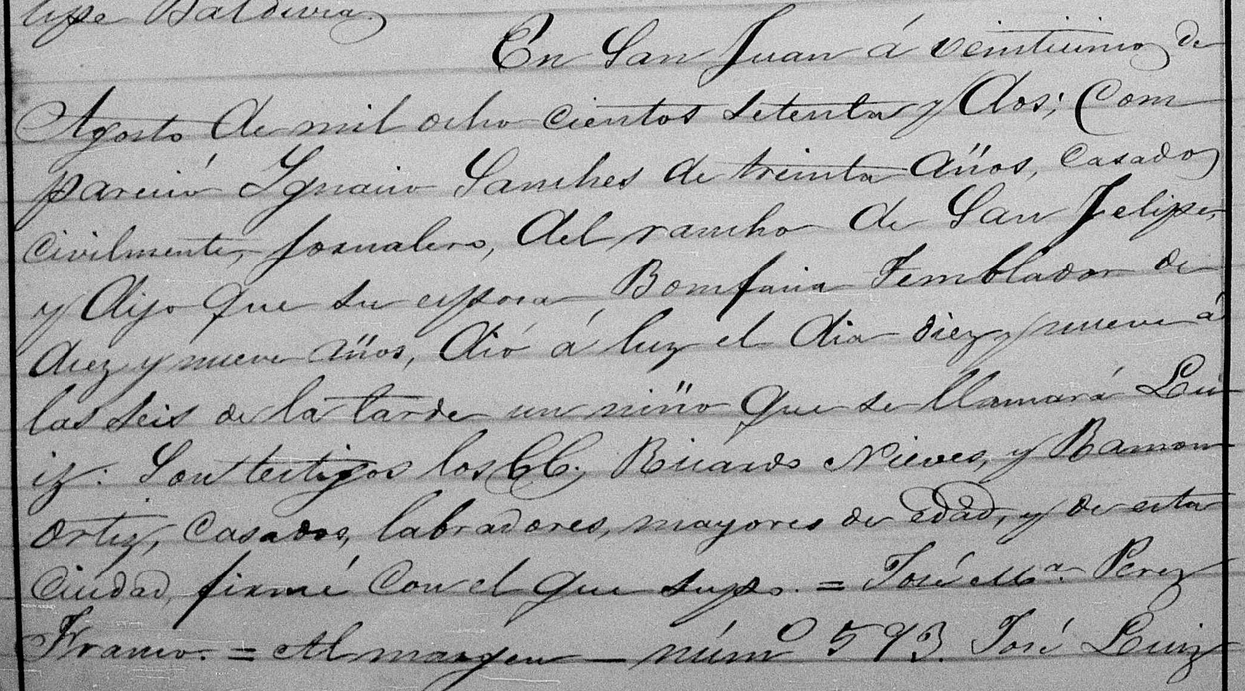 lipe Baldivia.
En San Juan á veinticinco de
Agosto de mil ocho cientos setenta y dos; Com
pareció Ygnacio Sanches de treinta años, casado
civilmente, jornalero, del rancho de San Felipe,
y dijo que su esposa Bonifacia Temblador de
diez y nueve años, dió á luz el dia diez y nueve á
las seis de la tarde un niño que se llamará Lu
iz. Son testigos los CC. Ricardo Nieves, y Ramon
Ortiz, casados, labradores, mayores de edad, y de esta
ciudad, firmé con el que supo. = José Ma. Perez
Franco. = Al margen — núm. 593. José Luiz